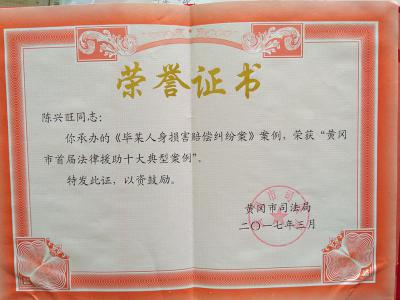 荣誉证书
陈兴旺同志：
你承办的《毕某人身损害赔偿纠纷案》案例，荣获“黄冈
市首届法律援助十大典型案例”。
特发此证，以资鼓励。
黄冈市司法局
二〇一七年三月